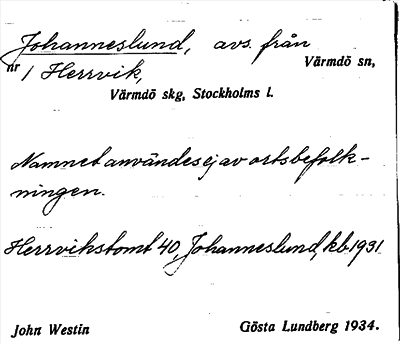 Johanneslund, avs. från
nr 1 Herrvik, Värmdö sn,
Värmdö skg, Stockholms l.
Namnet användes ej av ortsbefolk-
ningen.
Herrvikstomt 40, Johanneslund, kb 1931
John Westin Gösta Lundberg 1934.